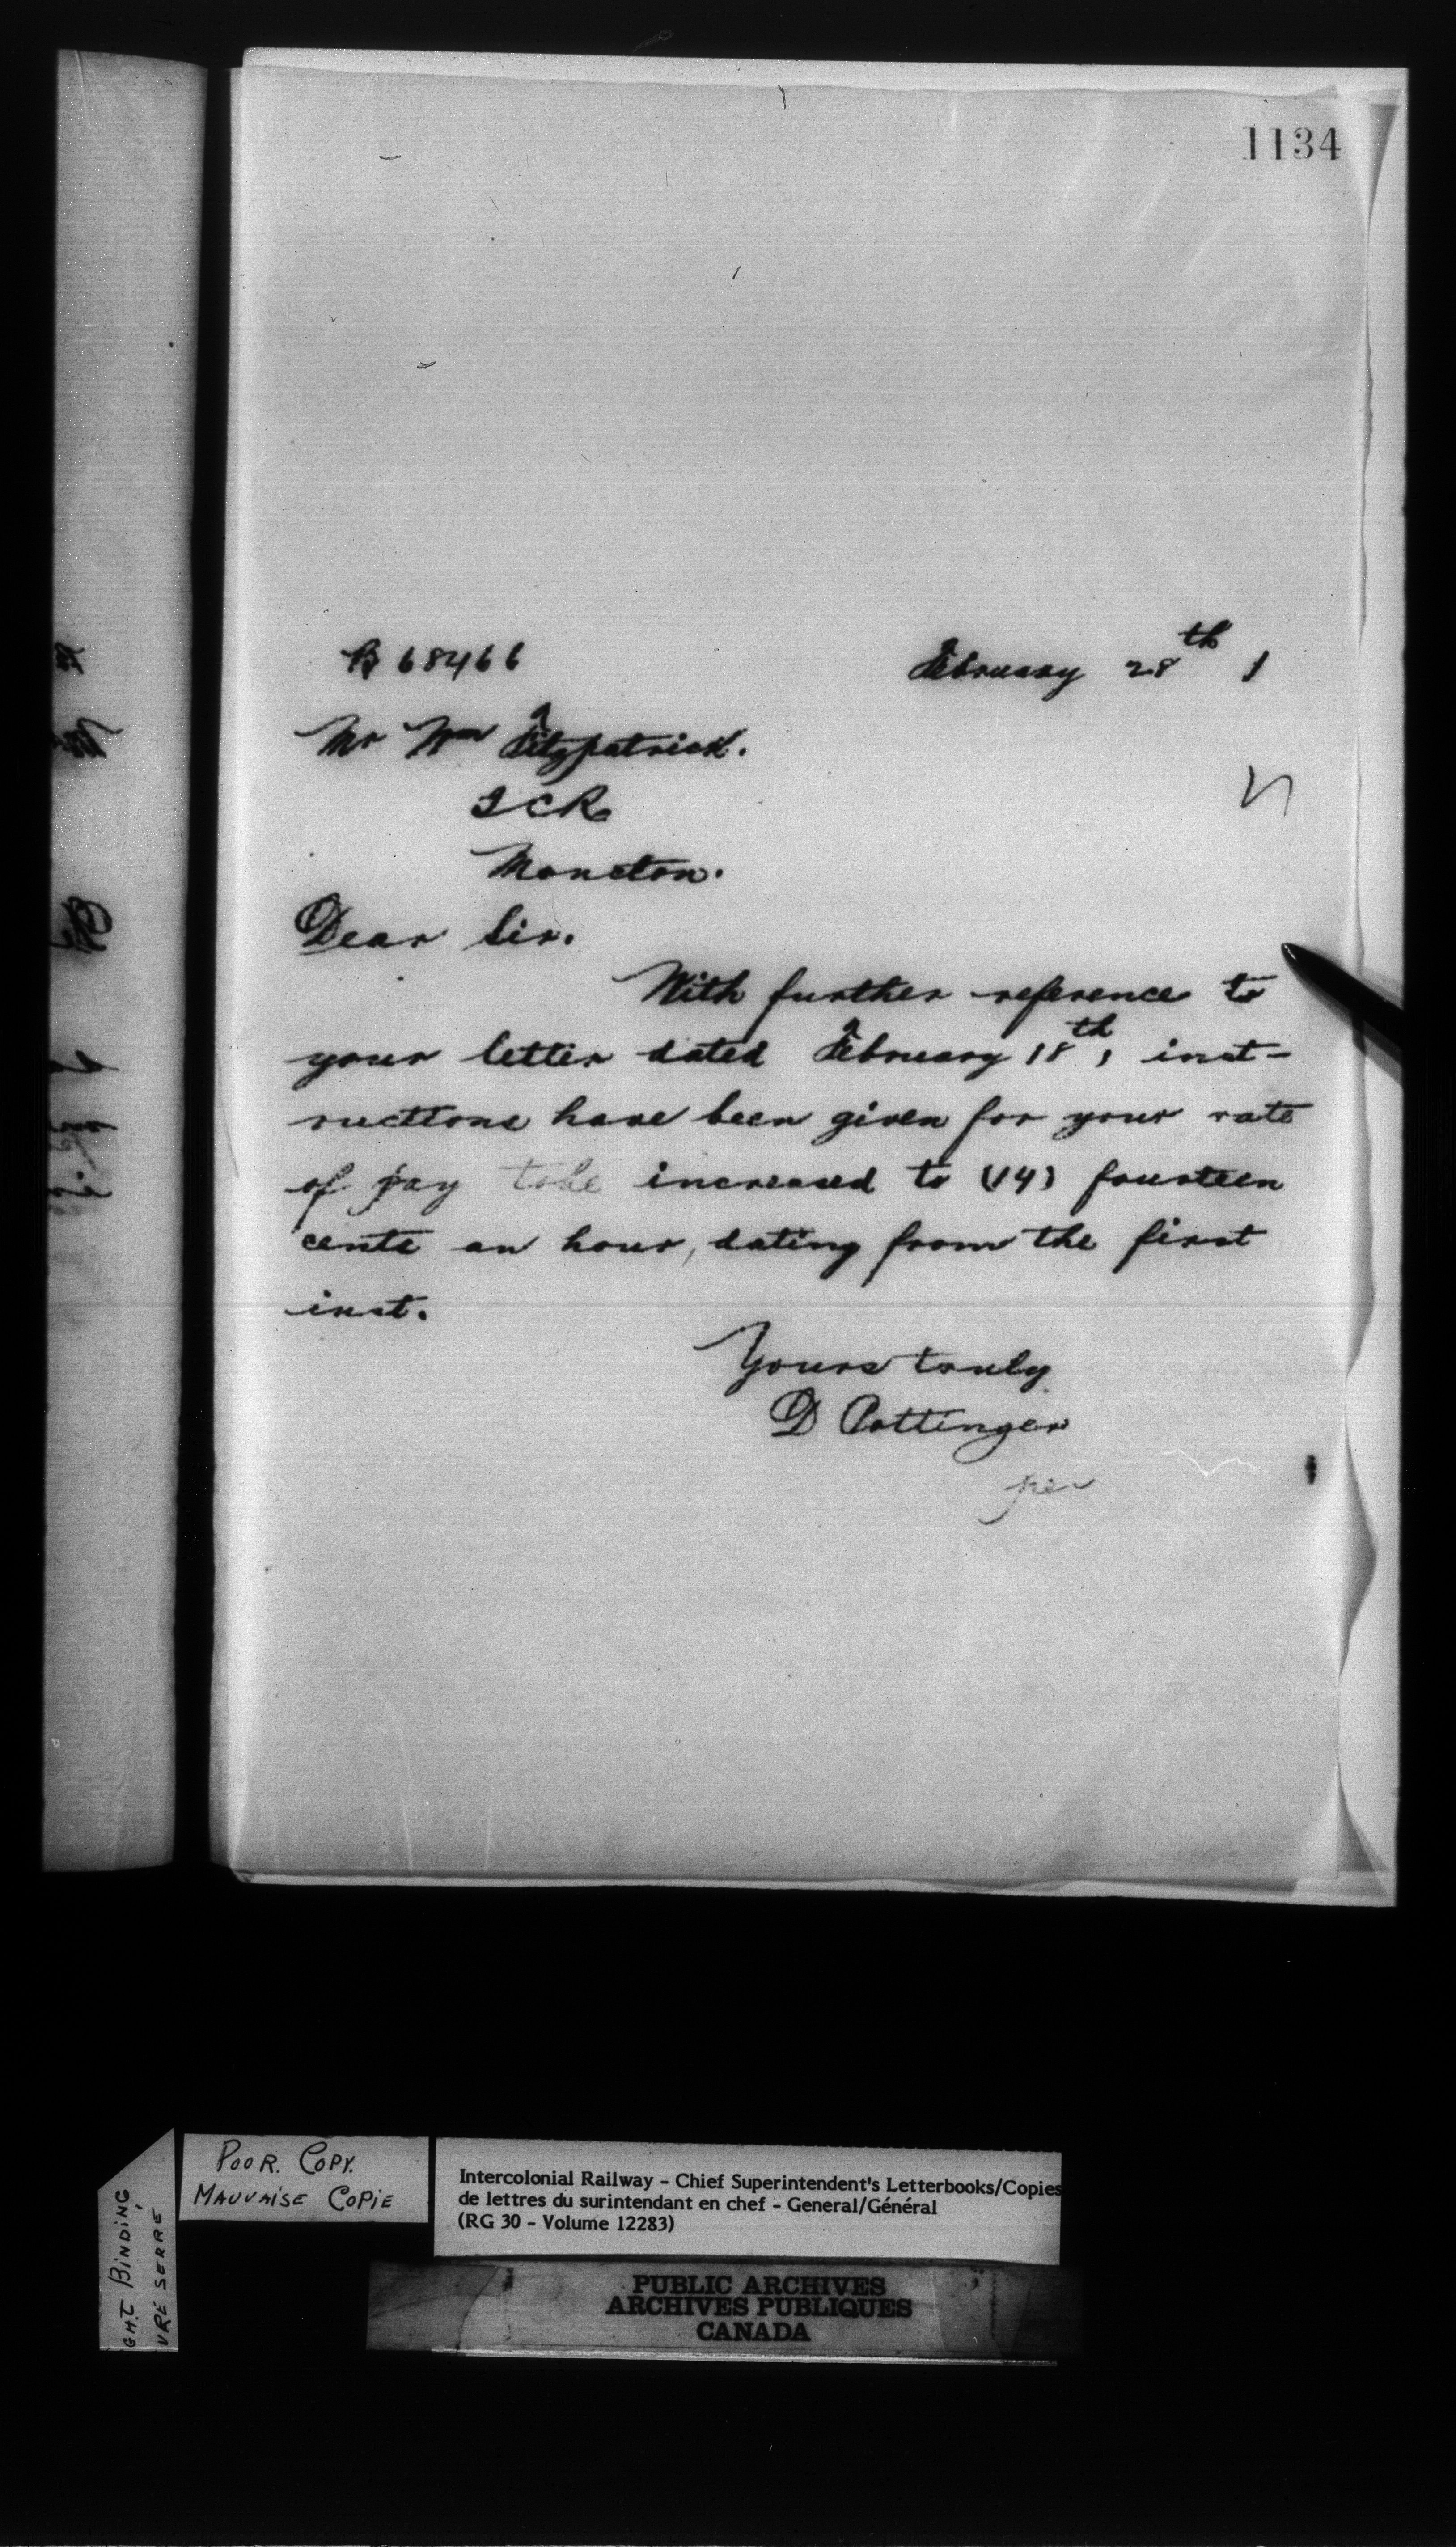 1134
B 68466
February 28th 1
Mr Wm Fitzpatrick.
ICR
Moncton.
Dear Sir.
With further reference to
your letter dated February 18th, inst-
ructions have been given for your rate
of pay to be increased to (14) fourteen
cents an hour, dating from the first
inst.
Yours truly
D Pottinger
per
POOR. COPY.
MAUVAISE COPIE
GHT BINDING
VRE SERRÉ
Intercolonial Railway - Chief Superintendent's Letterbooks/Copies
de lettres du surintendant en chef - General/Général
(RG 30 - Volume 12283)
PUBLIC ARCHIVES
ARCHIVES PUBLIQUES
CANADA